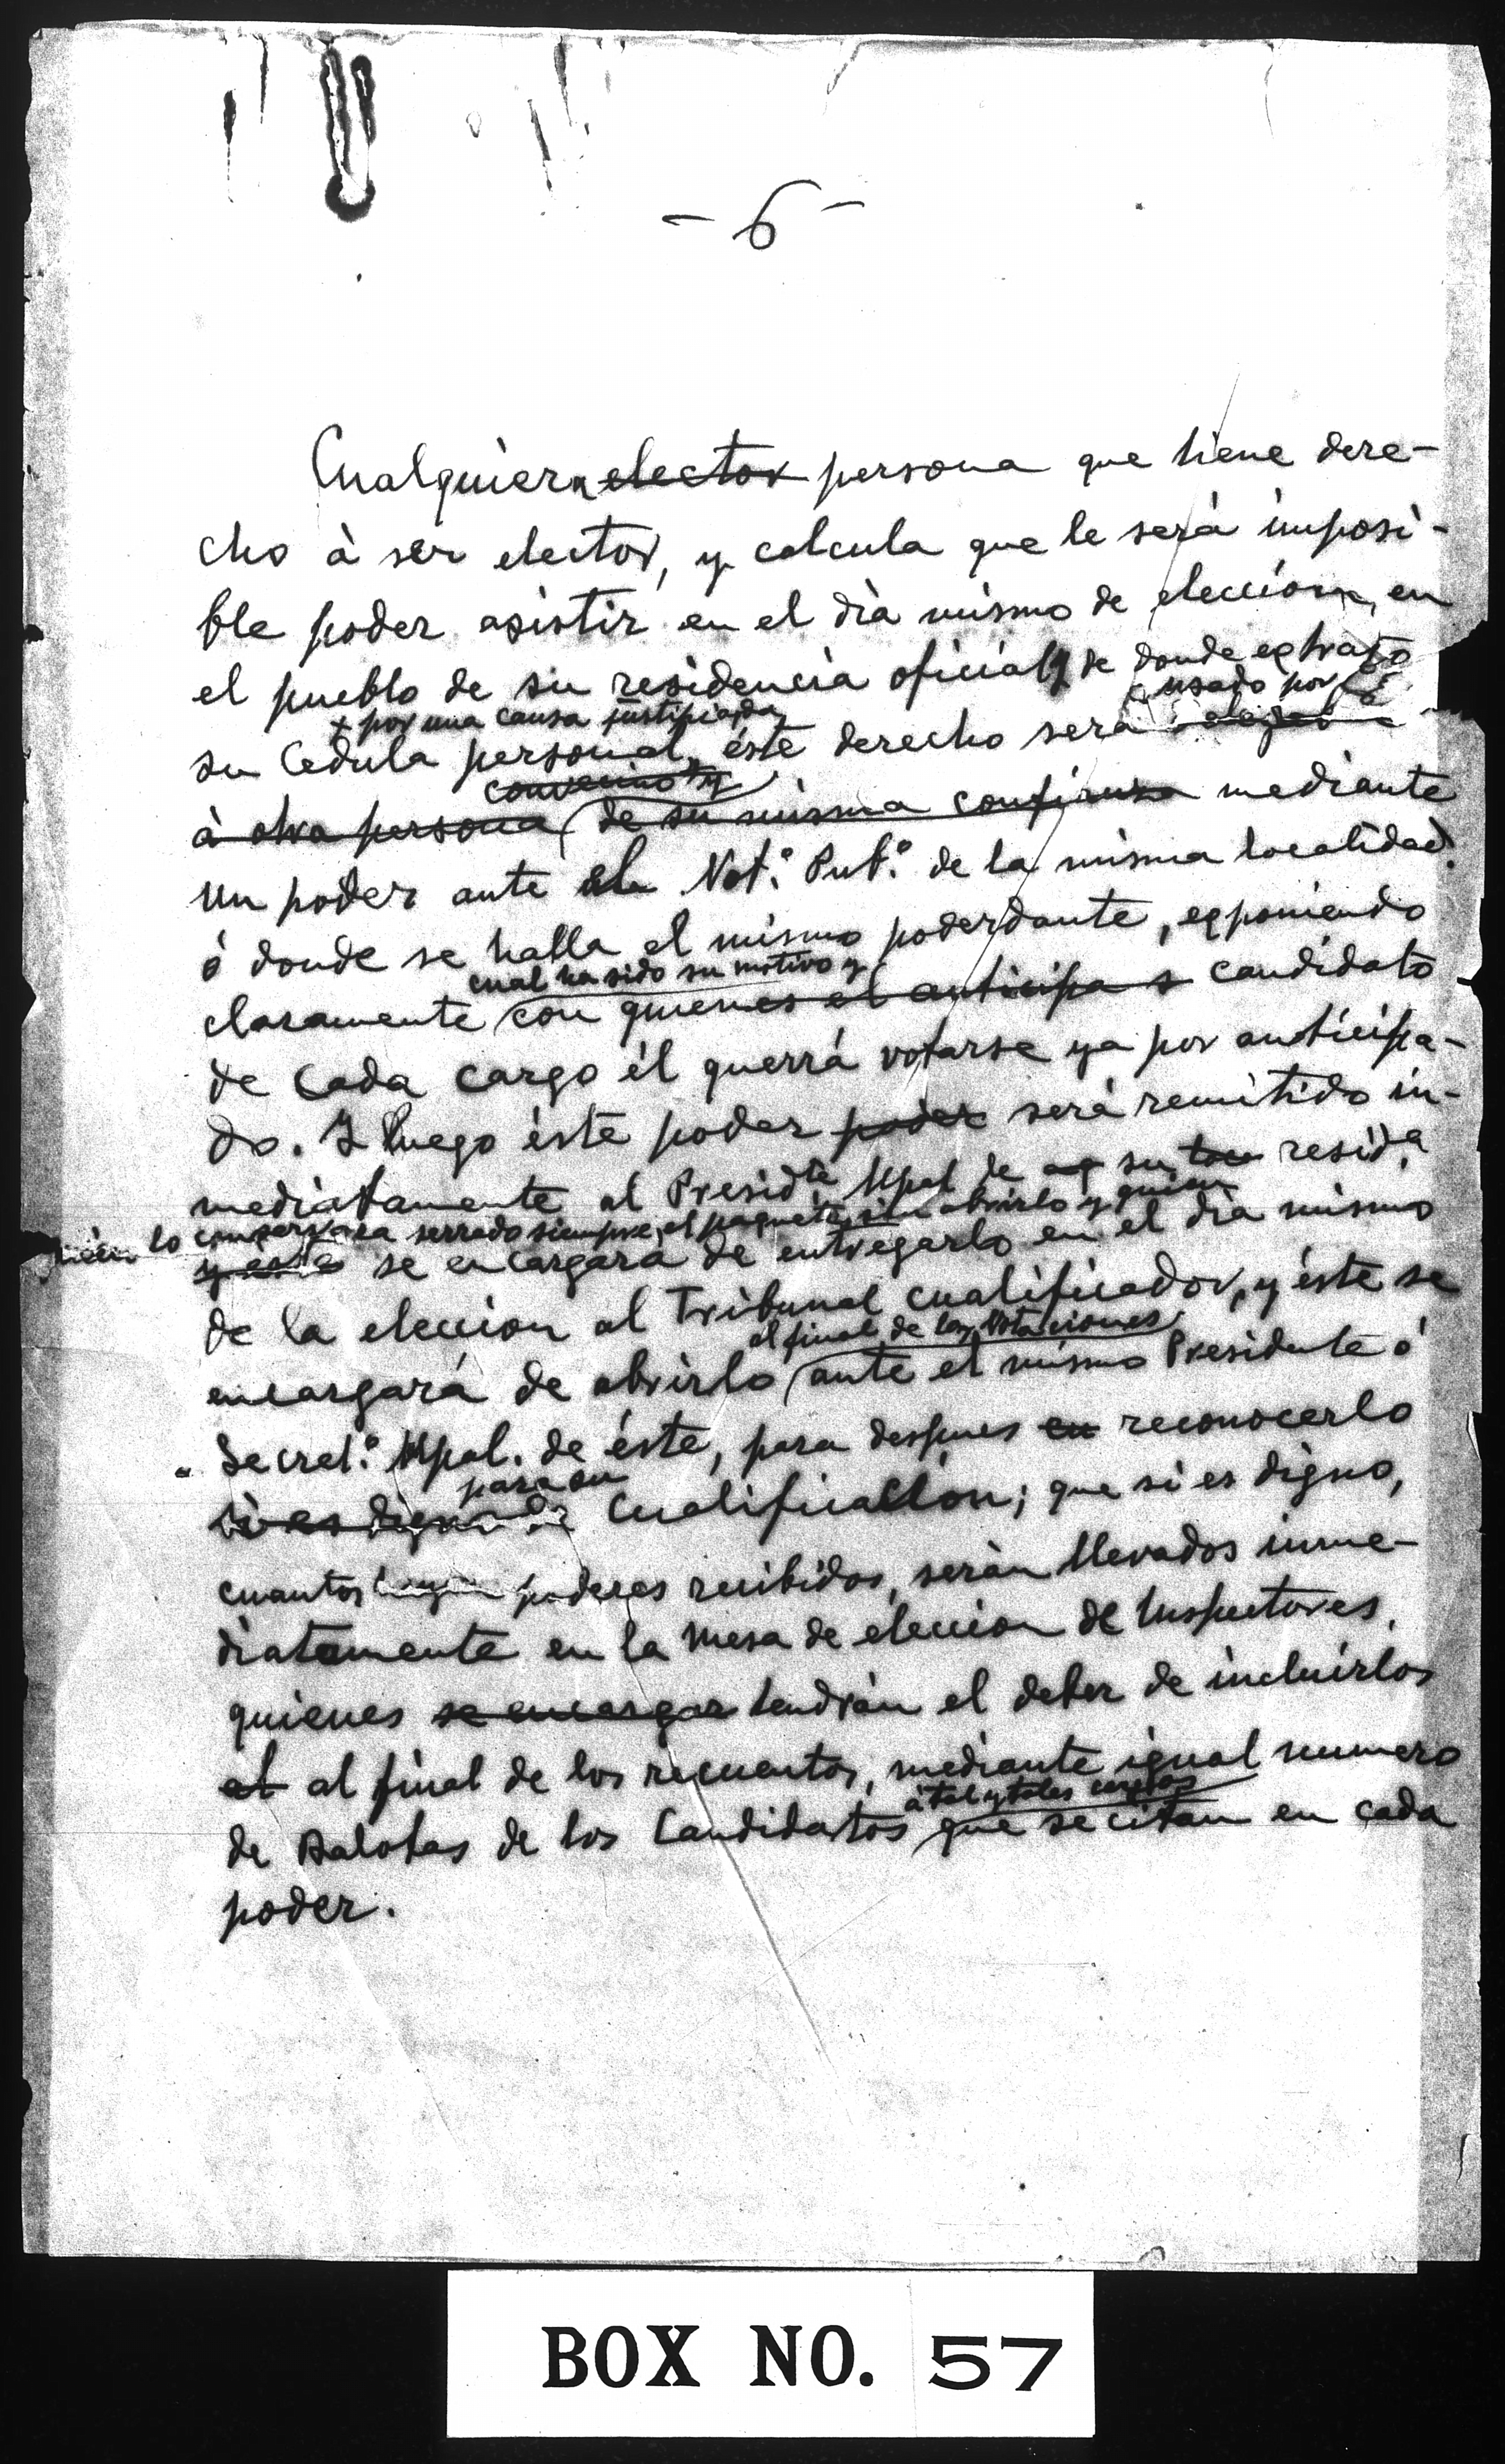 - 6 -
Cualquiera elector persona que tiene dere-
cho à ser elector, y calcula que le será imposi-
ble poder asistir en el dia mismo de eleccion, en
el pueblo de su residencia oficial y de donde extrajo
+ por una causa justificada, usado por
su Cedula personal, éste derecho será
convecino y
à otra persona de su misma confianza mediante
un poder ante el Not.º Pub.º de la misma localidad
ó donde se halla el mismo poderdante, exponiendo
cual ha sido su motivo y
claramente con quienes el anticipa s candidato
de cada cargo él querrá votarse ya por anticipa-
do. Y luego éste poder poder será remitido in-
mediatamente al Presidte Mpal de su resid.a
quien lo conservara serrado siempre el paquete sin abrirlo y quien
y este se encargara de entregarlo en el dia mismo
de la eleccion al Tribunal cualificador, y éste se
al final de las Votaciones
encargará de abrirlo ante el mismo Presidente ó
Secret.º Mpal. de éste, para despues en reconocerlo
para su
si es digno de Cualificacion; que si es digno,
cuantos poderes recibidos, serán llevados inme-
diatamente en la Mesa de eleccion de Inspectores,
quienes se encargar tendrán el deber de incluirlos
el al final de los recuentos, mediante igual numero
à tal y tales cargos
de Balotas de los Candidatos que se citan en cada
poder.
BOX NO. 57